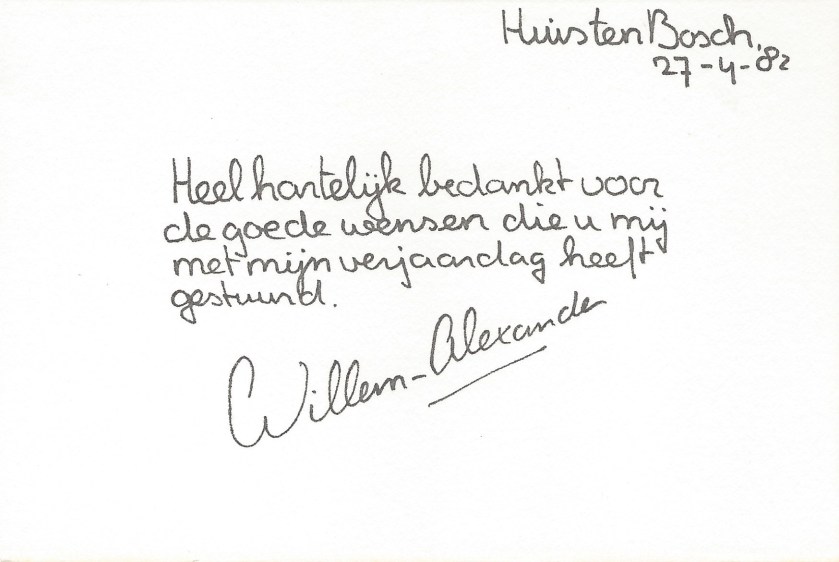 Huis ten Bosch,
27-4-82
Heel hartelijk bedankt voor
de goede wensen die u mij
met mijn verjaardag heeft
gestuurd.
Willem-Alexander